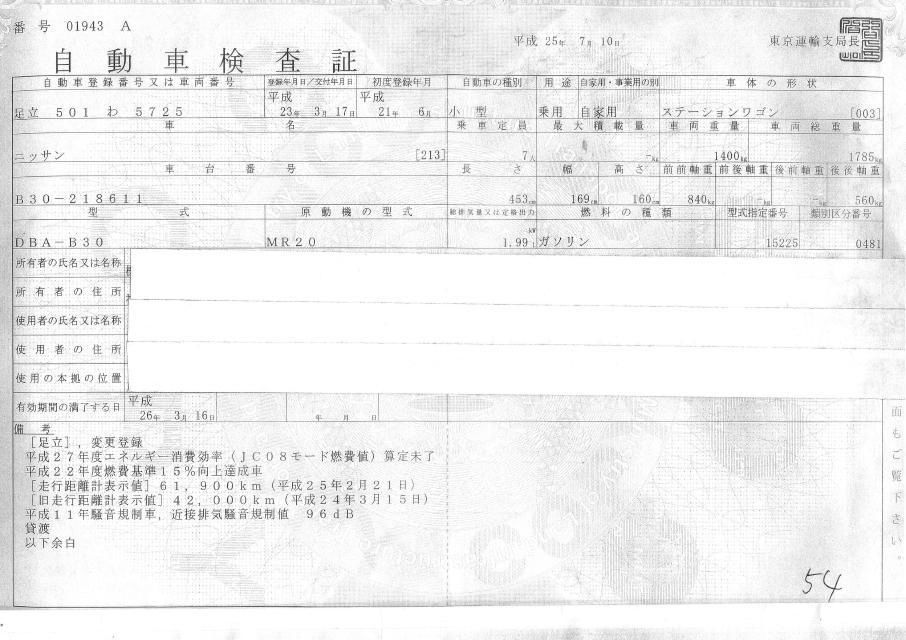 番号 01943 A
平成 25年 7月 10日
東京運輸支局長
自動車検査証
自動車登録番号又は車両番号 登録年月日/交付年月日 初度登録年月 自動車の種別 用途 自家用・事業用の別 車体の形状
平成 平成
足立 501 わ 5725 23年 3月 17日 21年 6月 小型 乗用 自家用 ステーションワゴン [003]
車名 乗車定員 最大積載量 車両重量 車両総重量
ニッサン [213] 7人 -kg 1400kg 1785kg
車台番号 長さ 幅 高さ 前前軸重 前後軸重 後前軸重 後後軸重
B30-218611 453cm 169cm 160cm 840kg -kg -kg 560kg
型式 原動機の型式 総排気量又は定格出力 燃料の種類 型式指定番号 類別区分番号
DBA-B30 MR20 kW 1.99 l ガソリン 15225 0481
所有者の氏名又は名称
所有者の住所
使用者の氏名又は名称
使用者の住所
使用の本拠の位置
有効期間の満了する日 平成
26年 3月 16日 年 月 日
備考
[足立],変更登録
平成27年度エネルギー消費効率(JC08モード燃費値)算定未了
平成22年度燃費基準15%向上達成車
[走行距離計表示値]61,900km(平成25年2月21日)
[旧走行距離計表示値]42,000km(平成24年3月15日)
平成11年騒音規制車,近接排気騒音規制値 96dB
貸渡
以下余白
面もご覧下さい。
54